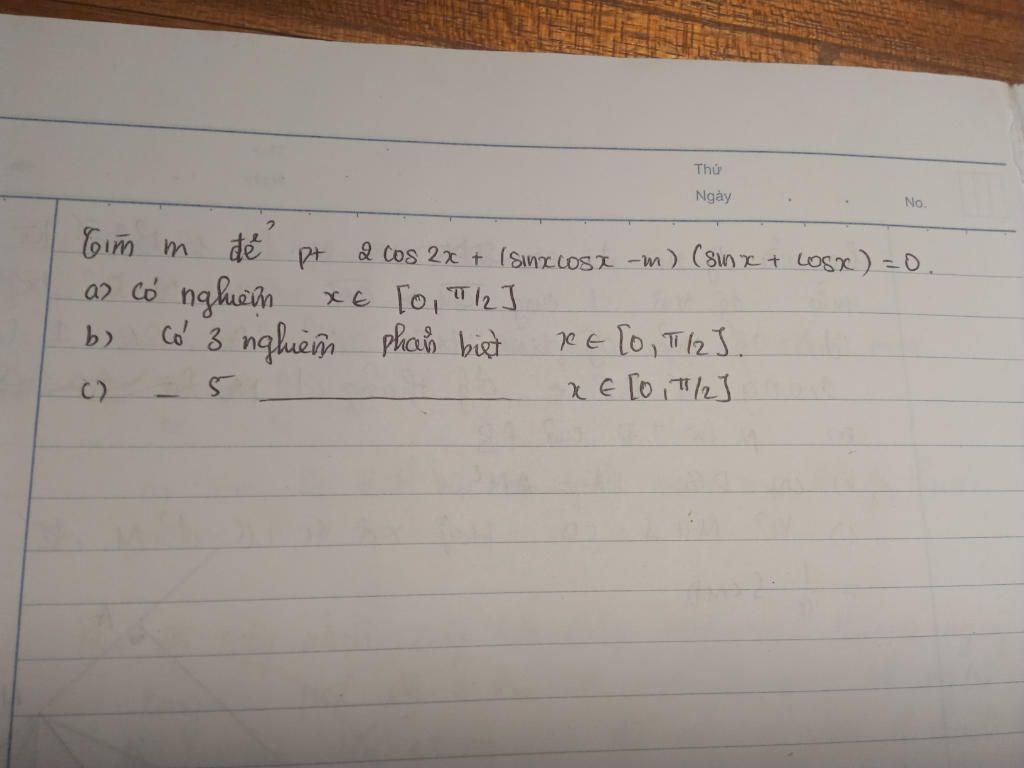 Thứ
Ngày . . No.
Tìm m để pt 2 cos 2x + (sinxcosx - m) (sinx + cosx) = 0.
a) Có nghiệm x ∈ [0, π/2]
b) Có 3 nghiệm phân biệt x ∈ [0, π/2].
c) _ 5 ________ x ∈ [0, π/2]